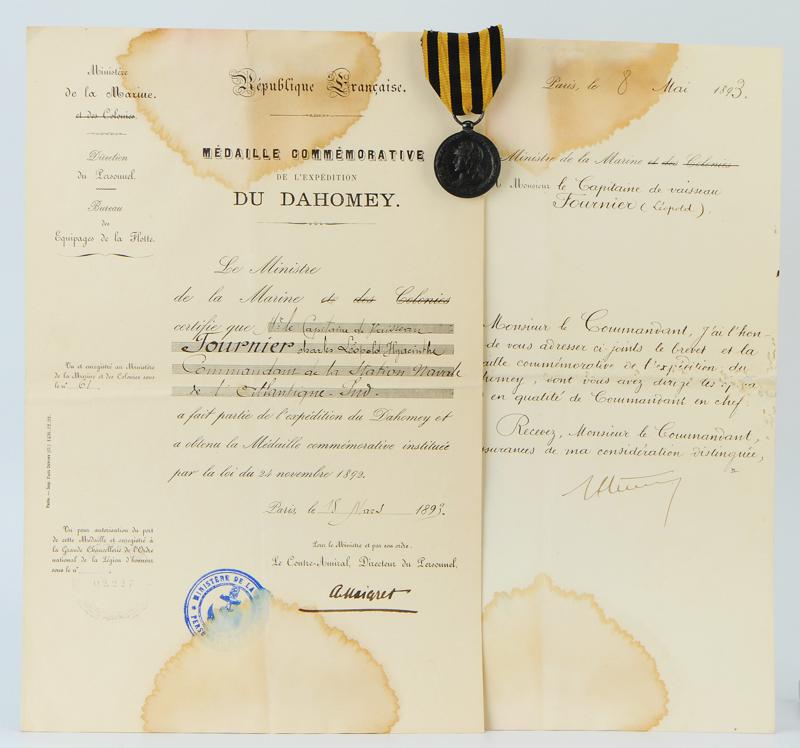 Ministère
de la Marine.
et des Colonies.
Direction
du Personnel.
Bureau
des
Equipages de la Flotte.
République Française.
MÉDAILLE COMMÉMORATIVE
DE L'EXPÉDITION
DU DAHOMEY.
Le Ministre
de la Marine et des Colonies
certifie que Mr le Capitaine de Vaisseau
Fournier Charles Léopold Hyacinthe
Commandant de la Station Navale
de l'Atlantique-Sud.
a fait partie de l'expédition du Dahomey et
a obtenu la Médaille commémorative instituée
par la loi du 24 novembre 1892.
Paris, le 18 Mars 1893.
Pour le Ministre et par son ordre.
Le Contre-Amiral, Directeur du Personnel.
Vu et enregistré au Ministère
de la Marine et des Colonies sous
le n° 61
Vu pour autorisation du port
de cette Médaille et enregistré à
la Grande Chancellerie de l'Ordre
national de la Légion d'honneur
sous le n°
02227
MINISTÈRE DE LA
PERSO
Paris, le 8 Mai 1893.
Ministre de la Marine et des Colonies
A Monsieur le Capitaine de vaisseau
Fournier (Léopold).
Monsieur le Commandant, j'ai l'hon-
de vous adresser ci-joints le brevet et la
aille commémorative de l'expédition du
homey, dont vous avez dirigé les opéra
en qualité de Commandant en chef.
Recevez, Monsieur le Commandant,
ssurances de ma considération distinguée,